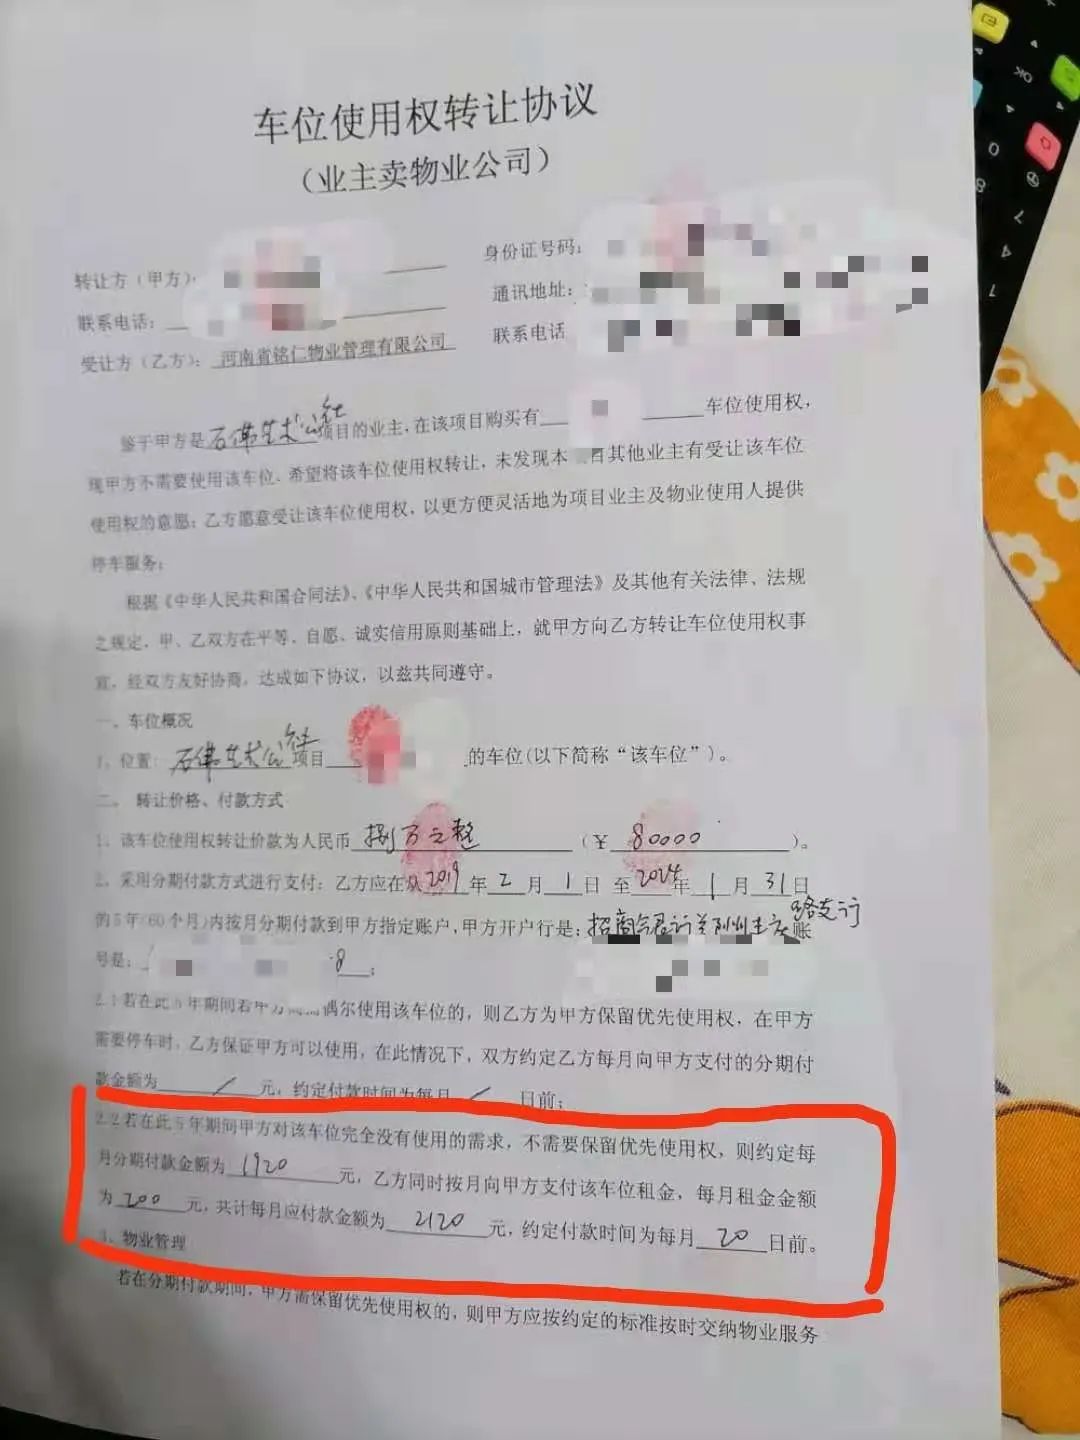 车位使用权转让协议
（业主卖物业公司）
转让方（甲方）：
身份证号码：
联系电话：
通讯地址：
受让方（乙方）：河南省铭仁物业管理有限公司
联系电话
鉴于甲方是石佛艺术公社项目的业主，在该项目购买有 车位使用权，
现甲方不需要使用该车位、希望将该车位使用权转让，未发现本 目其他业主有受让该车位
使用权的意愿；乙方愿意受让该车位使用权，以更方便灵活地为项目业主及物业使用人提供
停车服务；
根据《中华人民共和国合同法》、《中华人民共和国城市管理法》及其他有关法律、法规
之规定，甲、乙双方在平等、自愿、诚实信用原则基础上，就甲方向乙方转让车位使用权事
宜，经双方友好协商，达成如下协议，以兹共同遵守。
一、车位概况
1、位置：石佛艺术公社项目 的车位（以下简称“该车位”）。
二、 转让价格、付款方式
1、该车位使用权转让价款为人民币 捌万元整 （￥ 80000 ）。
2、采用分期付款方式进行支付：乙方应在从2019年2月1日 至2024年1月31日
的5年（60个月）内按月分期付款到甲方指定账户，甲方开户行是：招商 路支行 账
号是： 8 ；
2.1若在此5年期间若甲方 偶尔使用该车位的，则乙方为甲方保留优先使用权，在甲方
需要停车时，乙方保证甲方可以使用，在此情况下，双方约定乙方每月向甲方支付的分期付
款金额为 / 元，约定付款时间为每月 / 日前；
2.2若在此5年期间甲方对该车位完全没有使用的需求，不需要保留优先使用权，则约定每
月分期付款金额为 1920 元，乙方同时按月向甲方支付该车位租金，每月租金金额
为 200 元，共计每月应付款金额为 2120 元，约定付款时间为每月 20 日前。
3、物业管理
若在分期付款期间，甲方需保留优先使用权的，则甲方应按约定的标准按时交纳物业服务
OK
0
8
7
4
7